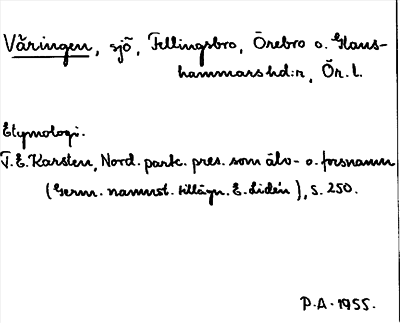 Väringen, sjö, Fellingsbro, Örebro o. Glans-
hammars hd:r, Ör. l.
Etymologi.
T. E. Karsten, Nord. partc. pres. som älv- o. forsnamn
(Germ. namnst. tillägn. E. Lidén), s. 250.
P. A. 1955.